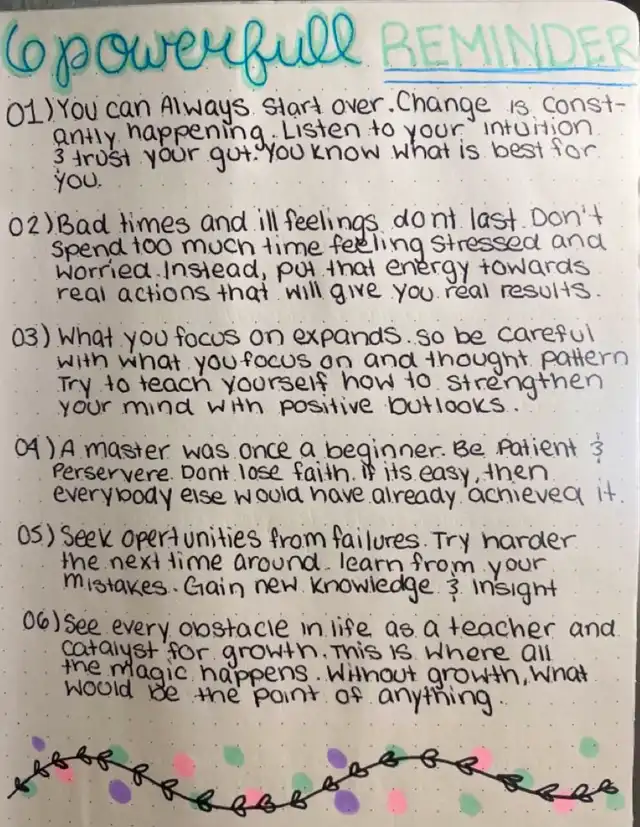 6 powerfull REMINDER
01) You can Always start over. Change is const-
antly happening. Listen to your intuition
& trust your gut. You know what is best for
you.
02) Bad times and ill feelings dont last. Don't
spend too much time feeling stressed and
worried. Instead, put that energy towards
real actions that will give you real results.
03) What you focus on expands. so be careful
with what you focus on and thought pattern
Try to teach yourself how to strengthen
your mind with positive outlooks.
04) A master was once a beginner. Be Patient &
Perservere. Dont lose faith. if its easy, then
everybody else would have already achieved it.
05) Seek opertunities from failures. Try harder
the next time around. learn from your
mistakes. Gain new knowledge & insight
06) See every obstacle in life as a teacher and
catalyst for growth. This is where all
the magic happens. Without growth, what
would be the point of anything.